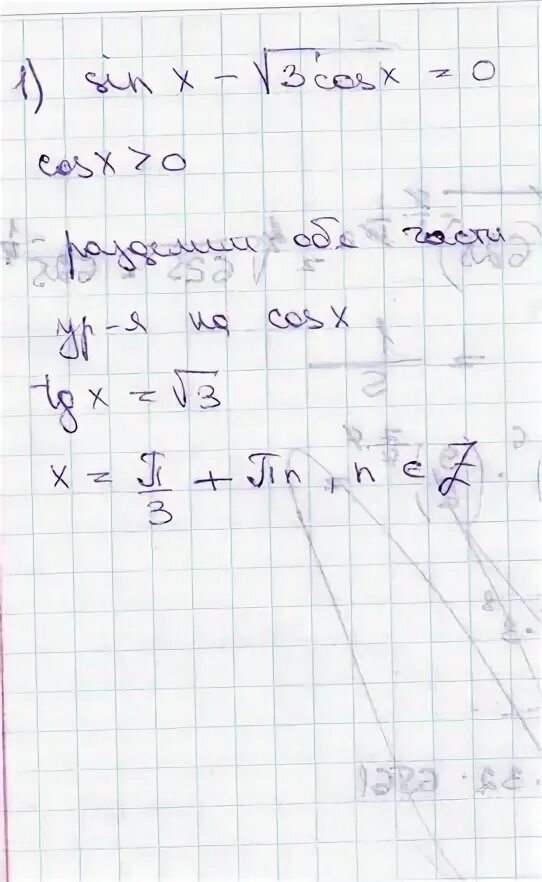 1) sin x - √3 cos x = 0
cos x > 0
разделим обе части
ур-я на cos x
tg x = √3
x = π/3 + πn, n ∈ Z